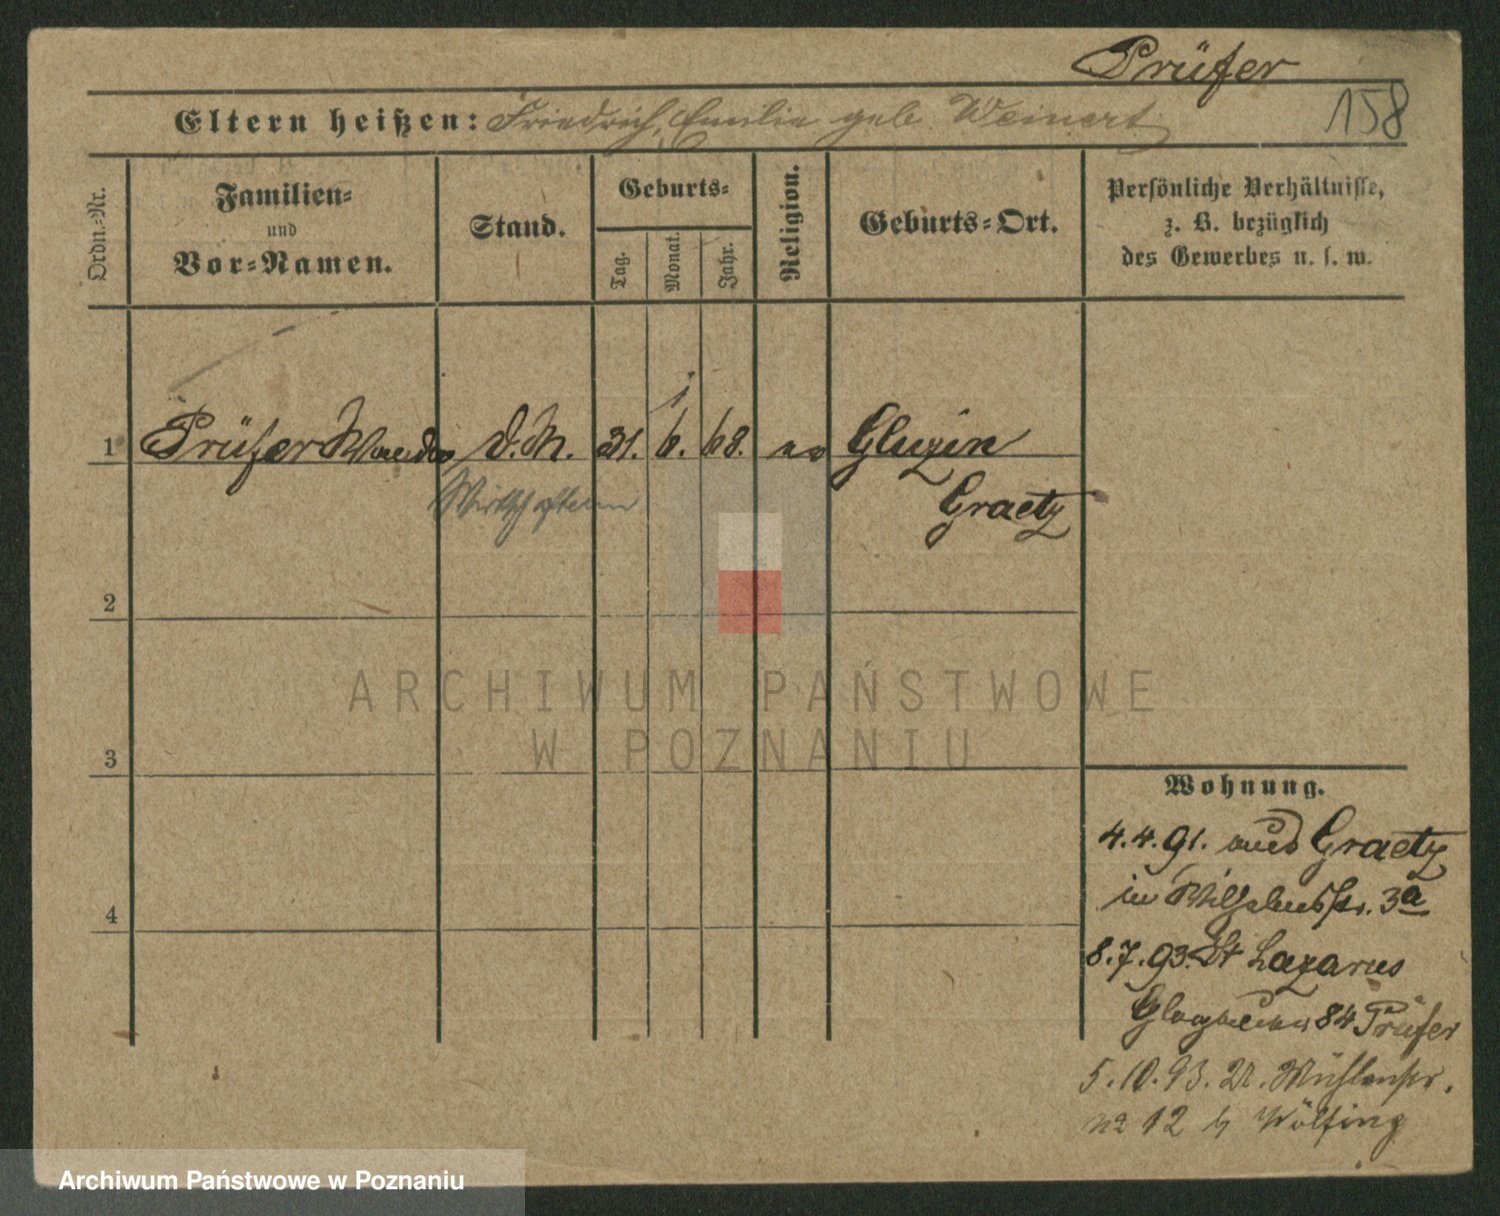 Prüfer
158
Eltern heißen: Friedrich, Emilie geb. Weinert
Ordn.-Nr.
Familien-
und
Vor-Namen.
Stand.
Geburts-
Tag.
Monat.
Jahr.
Religion.
Geburts-Ort.
Persönliche Verhältnisse,
z. B. bezüglich
des Gewerbes u. s. w.
1 Prüfer Wanda D.M. 21. 6. 68. ev Gluzin
Wirthschafterin
Graetz
2
3
4
ARCHIWUM PAŃSTWOWE
W POZNANIU
Wohnung.
4.4.91. aus Graetz
in Wilhelmsstr. 3a
8.7.93. St Lazarus
84 Prüfer
5.10.93. Mühlenstr.
No 12 b Wölfing
Archiwum Państwowe w Poznaniu